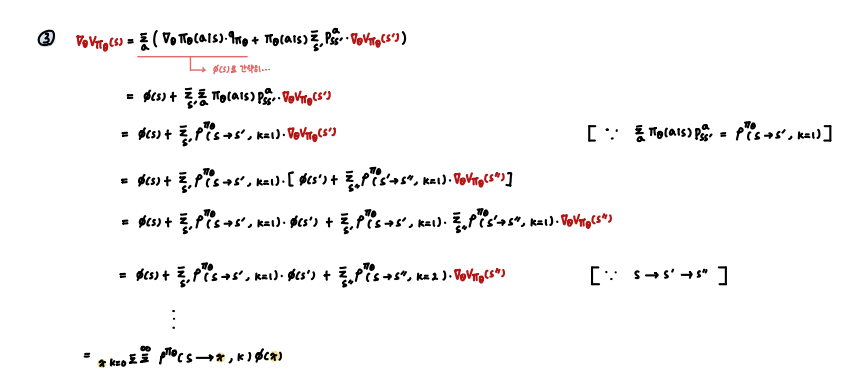 ③ ∇θVπθ(s) = Σa ( ∇θπθ(a|s)·qπθ + πθ(a|s) Σs' Pᵃss'·∇θVπθ(s') )
→ φ(s)로 간략히...
= φ(s) + Σs' Σa πθ(a|s) Pᵃss'·∇θVπθ(s')
= φ(s) + Σs' ρ^πθ(s→s', k=1)·∇θVπθ(s') [ ∵ Σa πθ(a|s) Pᵃss' = ρ^πθ(s→s', k=1) ]
= φ(s) + Σs' ρ^πθ(s→s', k=1)·[ φ(s') + Σs'' ρ^πθ(s'→s'', k=1)·∇θVπθ(s'') ]
= φ(s) + Σs' ρ^πθ(s→s', k=1)·φ(s') + Σs' ρ^πθ(s→s', k=1)·Σs'' ρ^πθ(s'→s'', k=1)·∇θVπθ(s'')
= φ(s) + Σs' ρ^πθ(s→s', k=1)·φ(s') + Σs'' ρ^πθ(s→s'', k=2)·∇θVπθ(s'') [ ∵ s → s' → s'' ]
⋮
= x k=0 Σ Σ ∞ ρ^πθ(s→x, k) φ(x)